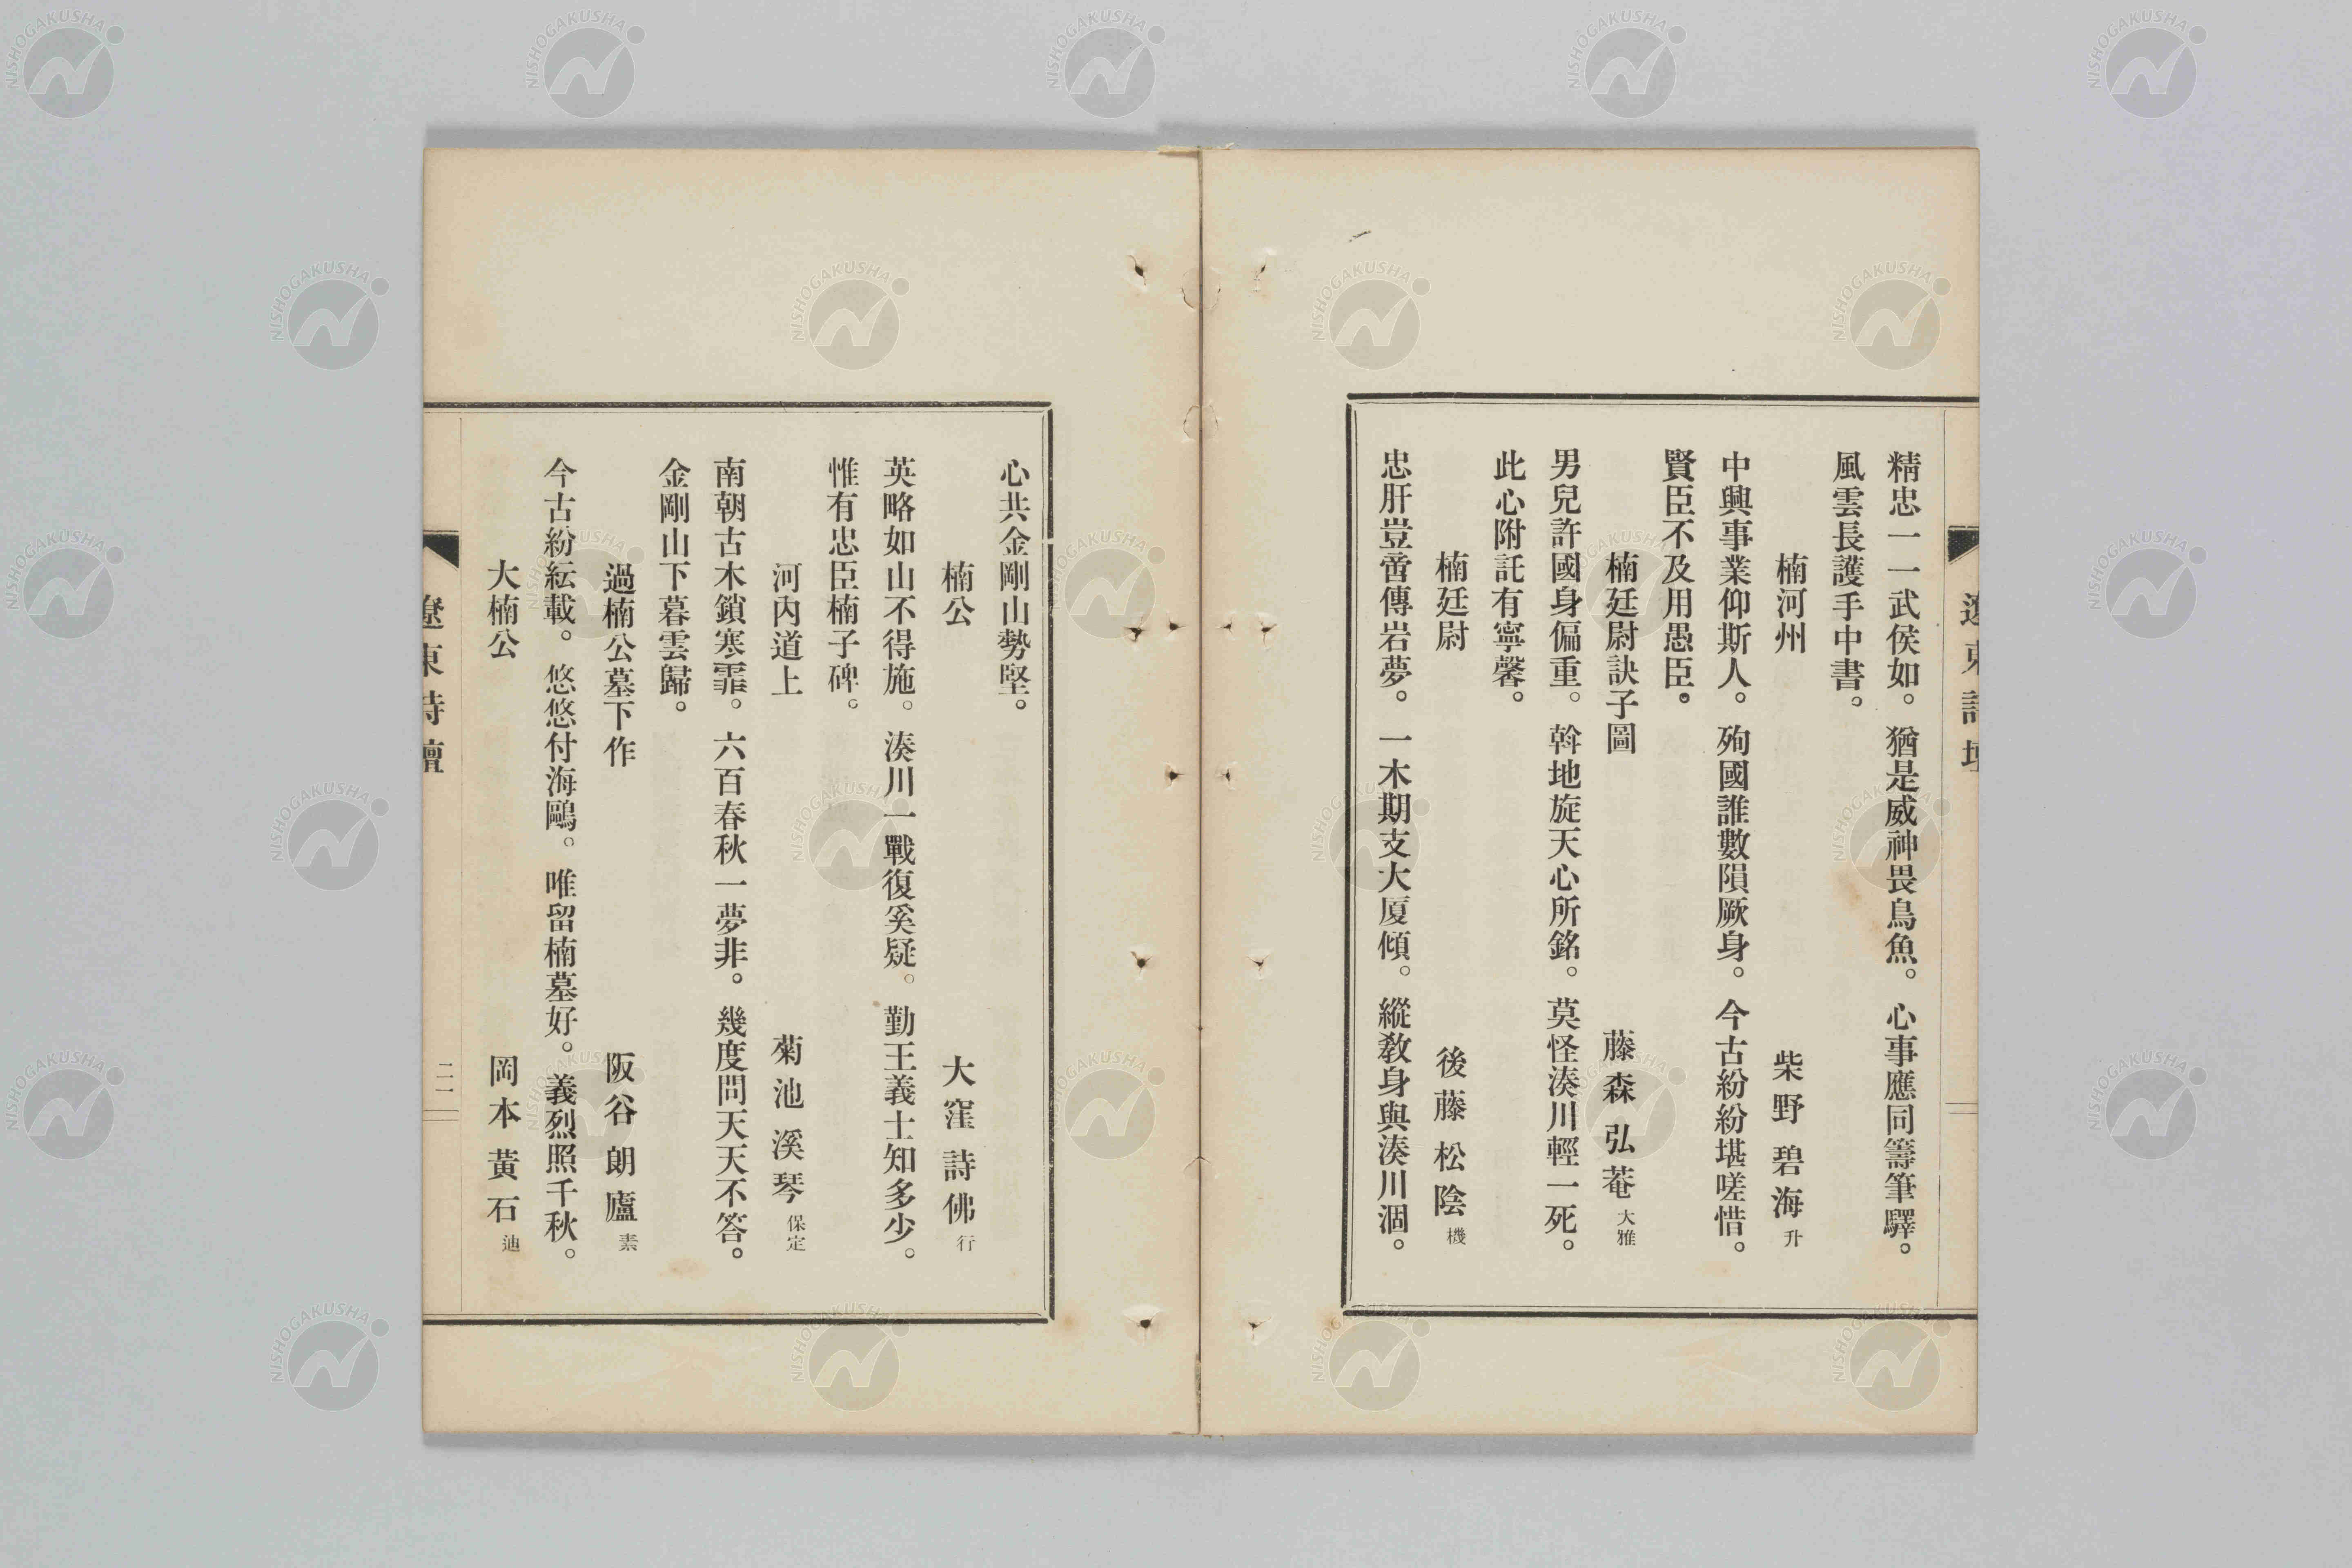 精忠一一武侯如。猶是威神畏鳥魚。心事應同籌筆驛。
風雲長護手中書。
楠河州 柴野碧海 升
中興事業仰斯人。殉國誰數隕厥身。今古紛紛堪嗟惜。
賢臣不及用愚臣。
楠廷尉訣子圖 藤森弘菴 大雅
男兒許國身偏重。斡地旋天心所銘。莫怪湊川輕一死。
此心附託有寧馨。
楠廷尉 後藤松陰 機
忠肝豈啻傳岩夢。一木期支大厦傾。縱教身與湊川涸。
心共金剛山勢堅。
楠公 大窪詩佛 行
英略如山不得施。湊川一戰復奚疑。勤王義士知多少。
惟有忠臣楠子碑。
河內道上 菊池溪琴 保定
南朝古木鎖寒霏。六百春秋一夢非。幾度問天天不答。
金剛山下暮雲歸。
過楠公墓下作 阪谷朗廬 素
今古紛紜載。悠悠付海鷗。唯留楠墓好。義烈照千秋。
大楠公 岡本黃石 迪
遼東詩壇
二一
NISHOGAKUSHA